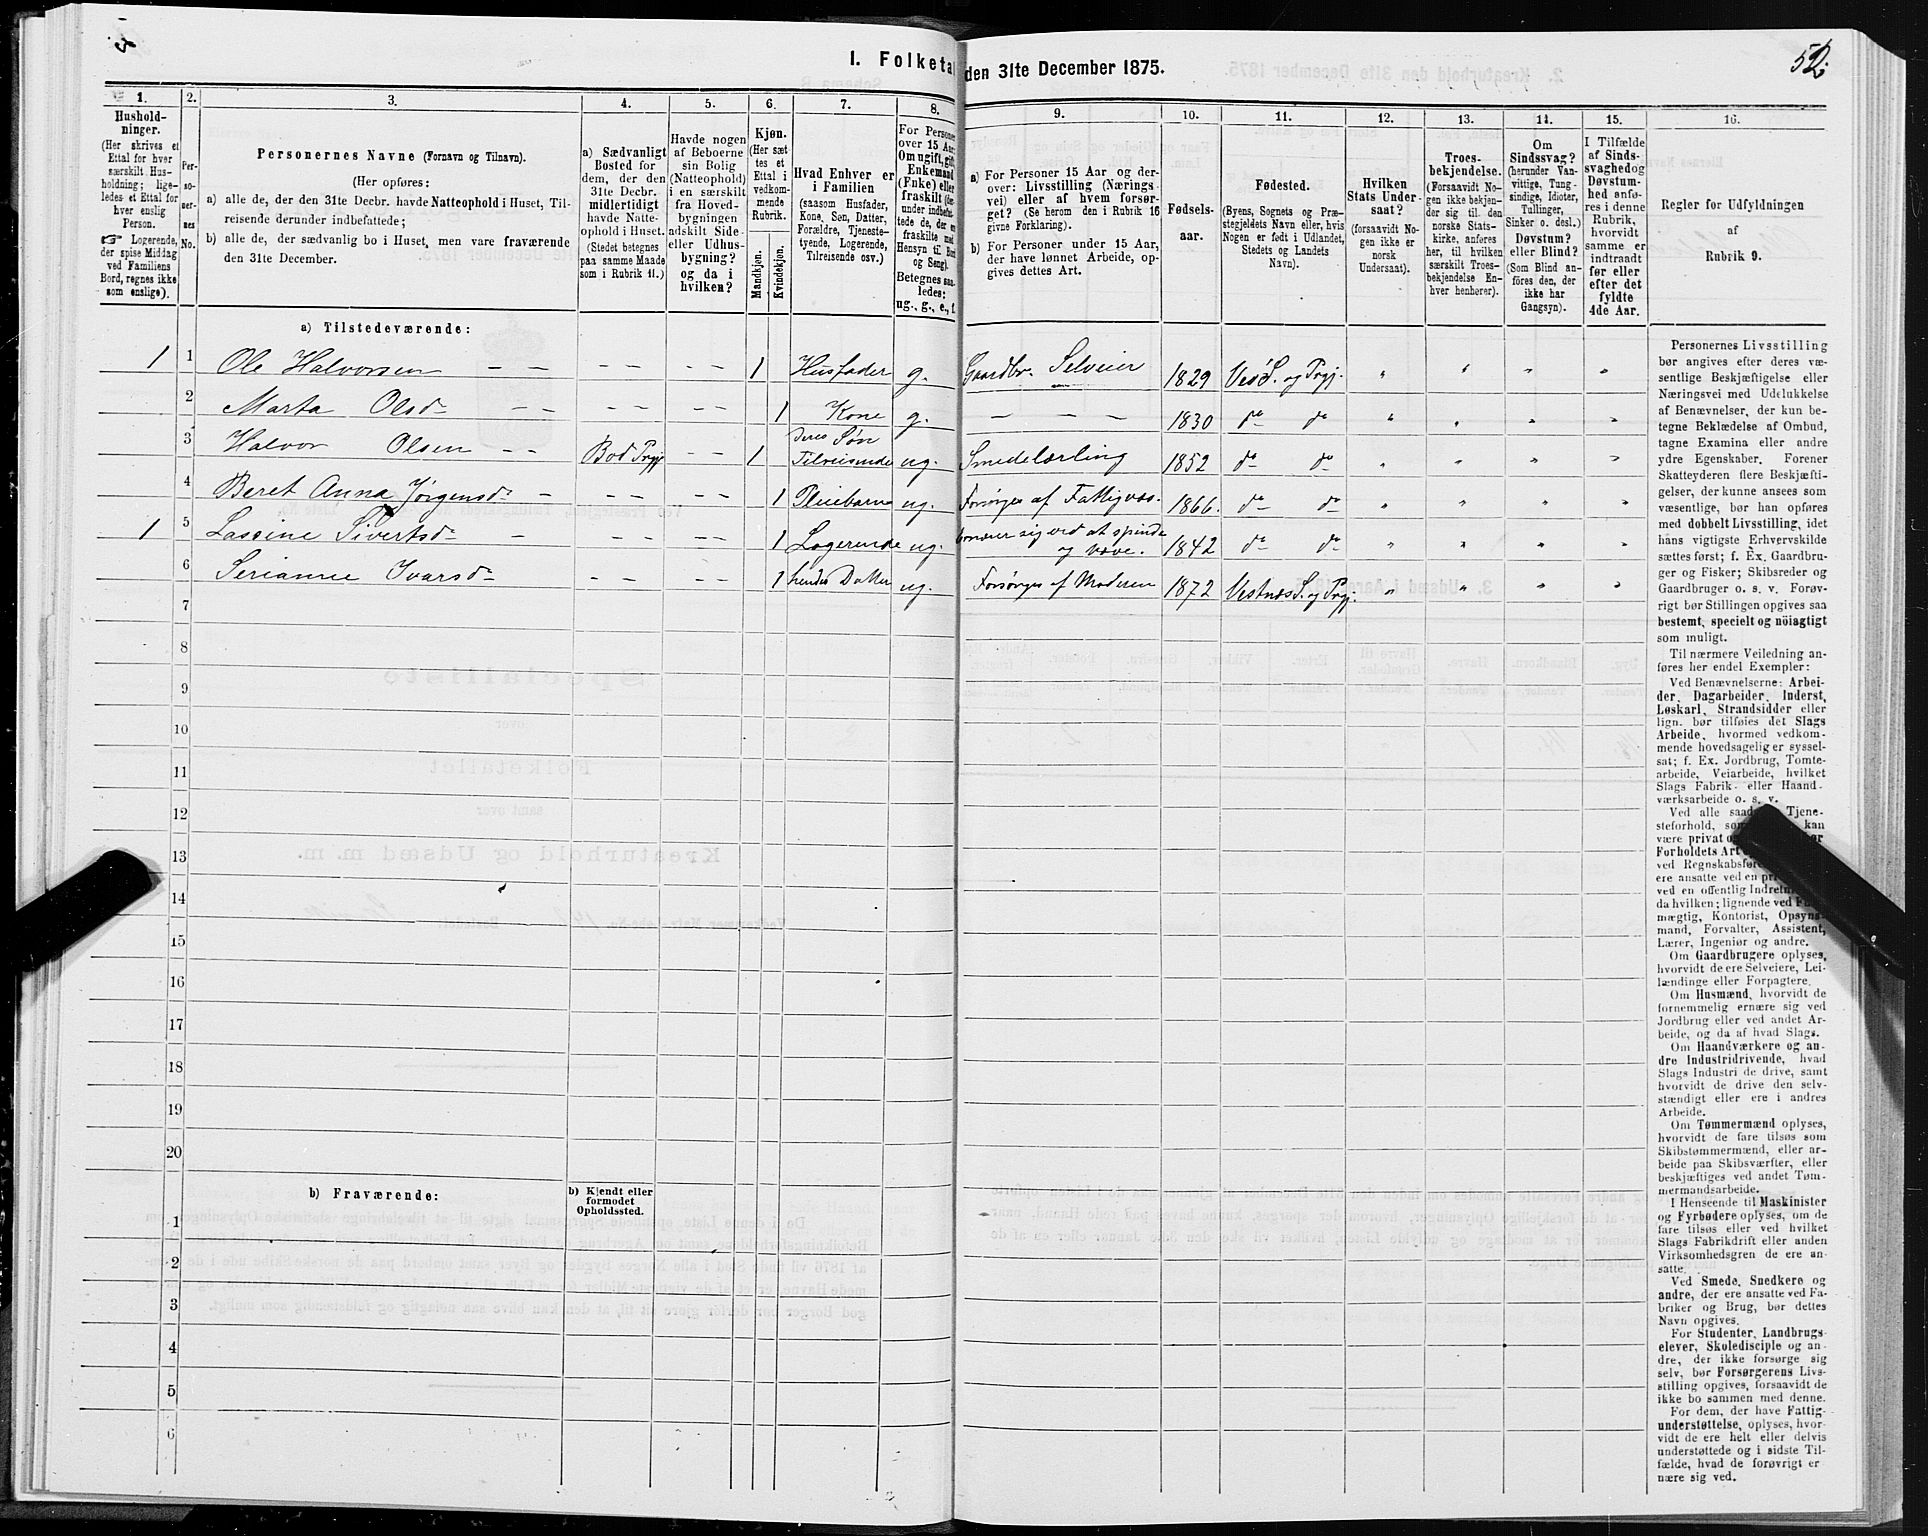 I. Folketal
den 31te December 1875.
52.
1.
Hushold-
ninger.
(Her skrives et
Ettal for hver
særskilt Hus-
holdning; lige-
ledes et Ettal for
hver enslig
Person.
☞ Logerende,
der spise Middag
ved Familiens
Bord, regnes ikke
som enslige).
2.
Per-
so-
ner-
nes
No.
3.
Personernes Navne (Fornavn og Tilnavn).
(Her opføres:
a) alle de, der den 31te Decbr. havde Natteophold i Huset, Til-
reisende derunder indbefattede;
b) alle de, der sædvanlig bo i Huset, men vare fraværende
den 31te December.
4.
a) Sædvanligt
Bosted for
dem, der den
31te Decbr.
midlertidigt
havde Natte-
ophold i Huset.
(Stedet betegnes
paa samme Maade
som i Rubrik 11.)
5.
Havde nogen
af Beboerne
sin Bolig
(Natteophold)
i en særskilt
fra Hoved-
bygningen
adskilt Side-
eller Udhus-
bygning?
og da i
hvilken?
6.
Kjøn.
(Her sæt-
tes et
Ettal i
vedkom-
mende
Rubrik.
Mandkjøn.
Kvindekjøn.
7.
Hvad Enhver er
i Familien
(saasom Husfader,
Kone, Søn, Datter,
Forældre, Tjeneste-
tyende, Logerende,
Tilreisende osv.)
8.
For Personer
over 15 Aar:
Om ugift, gift,
Enkemand
(Enke) eller
fraskilt (der-
under indbefat-
tede de, der ere
fraskilte med
Hensyn til Bord
og Seng).
Betegnes saa-
ledes:
ug., g., e., f.
9.
a) For Personer 15 Aar og der-
over: Livsstilling (Nærings-
vei) eller af hvem forsør-
get? (Se herom den i Rubrik 16
givne Forklaring).
b) For Personer under 15 Aar,
der have lønnet Arbeide, op-
gives dettes Art.
10.
Fødsels-
aar.
11.
Fødested.
(Byens, Sognets og Præ-
stegjeldets Navn eller, hvis
Nogen er født i Udlandet,
Stedets og Landets
Navn).
12.
Hvilken
Stats Under-
saat?
(forsaavidt No-
gen ikke er
norsk
Undersaat).
13.
Troes-
bekjendelse.
(Forsaavidt No-
gen ikke bekjen-
der sig til den
norske Stats-
kirke, anføres
her, til hvilken
særskilt Troes-
bekjendelse En-
hver henhører).
14.
Om
Sindssvag?
(herunder Van-
vittige, Tung-
sindige, Idioter,
Tullinger,
Sinker o. desl.)
Døvstum?
eller Blind?
(Som Blind an-
føres den, der
ikke har
Gangsyn).
15.
I Tilfælde
af Sinds-
svaghed og
Døvstum-
hed anfø-
res i denne
Rubrik,
hvorvidt
samme er
indtraadt
før eller
efter det
fyldte
4de Aar.
16.
Regler for Udfyldningen
af
Rubrik 9.
a) Tilstedeværende:
1 1 Ole Halvorsen – – – – – – 1 Husfader g. Gaardbr. Selveier 1829 Vesø S. og Prgj. " " " "
2 Marta Olsd – – – – – – 1 Kone g. – – 1830 do do " " " "
3 Halvor Olsen – – Bod Prgj – – 1 deres Søn Tilreisende ug. Smedelærling 1852 do do " " " "
4 Beret Anna Jørgensd – – – – – 1 Pleiebarn ug. Forsørges af Fattigvæs. 1866. do do " " " "
1 5 Lassine Sivertsd – – – – – 1 Logerende ug. ernærer sig ved at spinde og væve. 1842 do do " " " "
6 Serianne Ivarsd – – – – 1 hendes Datter ug. Forsørges af Moderen 1872 Vestnæs S. og Prgj. " " " "
7
8
9
10
11
12
13
14
15
16
17
18
19
20
b) Fraværende:
b) Kjendt eller
formodet
Opholdssted.
1
2
3
4
5
6
Personernes Livsstilling
bør angives efter deres væ-
sentlige Beskjæftigelse eller
Næringsvei med Udelukkelse
af Benævnelser, der kun be-
tegne Beklædelse af Ombud,
tagne Examina eller andre
ydre Egenskaber. Forener
Skatteyderen flere Beskjæfti-
gelser, der kunne ansees som
væsentlige, bør han opføres
med dobbelt Livsstilling, idet
hans vigtigste Erhvervskilde
sættes først; f. Ex. Gaardbru-
ger og Fisker; Skibsreder og
Gaardbruger o. s. v. Forøv-
rigt bør Stillingen opgives saa
bestemt, specielt og nöiagtigt
som muligt.
Til nærmere Veiledning an-
føres her endel Exempler:
Ved Benævnelserne: Arbei-
der, Dagarbeider, Inderst,
Løskarl, Strandsidder eller
lign. bør tilføies det Slags
Arbeide, hvormed vedkom-
mende hovedsagelig er syssel-
sat; f. Ex. Jordbrug, Tomte-
arbeide, Veiarbeide, hvilket
Slags Fabrik- eller Haand-
værksarbeide o. s. v.
Ved alle Tjene-
steforhold, kan
være privat
Forholdets Art
ved Regnskabsfø
ere ansatte ved en
ved en offentlig Indret
da hvilken; lignende ved
mægtig, Kontorist, Opsyns-
mand, Forvalter, Assistent,
Lærer, Ingeniør og andre.
Om Gaardbrugere oplyses,
hvorvidt de ere Selveiere, Lei-
lændinge eller Forpagtere.
Om Husmænd, hvorvidt de
fornemmelig ernære sig ved
Jordbrug eller ved andet Ar-
beide, og da af hvad Slags.
Om Haandværkere og an-
dre Industridrivende, hvad
Slags Industri de drive, samt
hvorvidt de drive den selv-
stændigt eller ere i andres
Arbeide.
Om Tømmermænd oplyses,
hvorvidt de fare tilsøs som
Skibstømmermænd, eller ar-
beide paa Skibsværfter, eller
beskjæftiges ved andet Tøm-
mermandsarbeide.
I Henseende til Maskinister
og Fyrbødere oplyses, om de
fare tilsøs eller ved hvilket
Slags Fabrikdrift eller anden
Virksomhedsgren de ere an-
satte.
Ved Smede, Snedkere og
andre, der ere ansatte ved Fa-
briker og Brug, bør dettes
Navn opgives.
For Studenter, Landbrugs-
elever, Skoledisciple og an-
dre, der ikke forsørge sig
selv, bør Forsørgerens Livs-
stilling opgives, forsaavidt de
ikke bo sammen med denne.
For dem, der have Fattig-
understøttelse, oplyses, hvor-
vidt de ere helt eller delvis
understøttede og i sidste Til-
fælde, hvad de forøvrigt er-
nære sig ved.